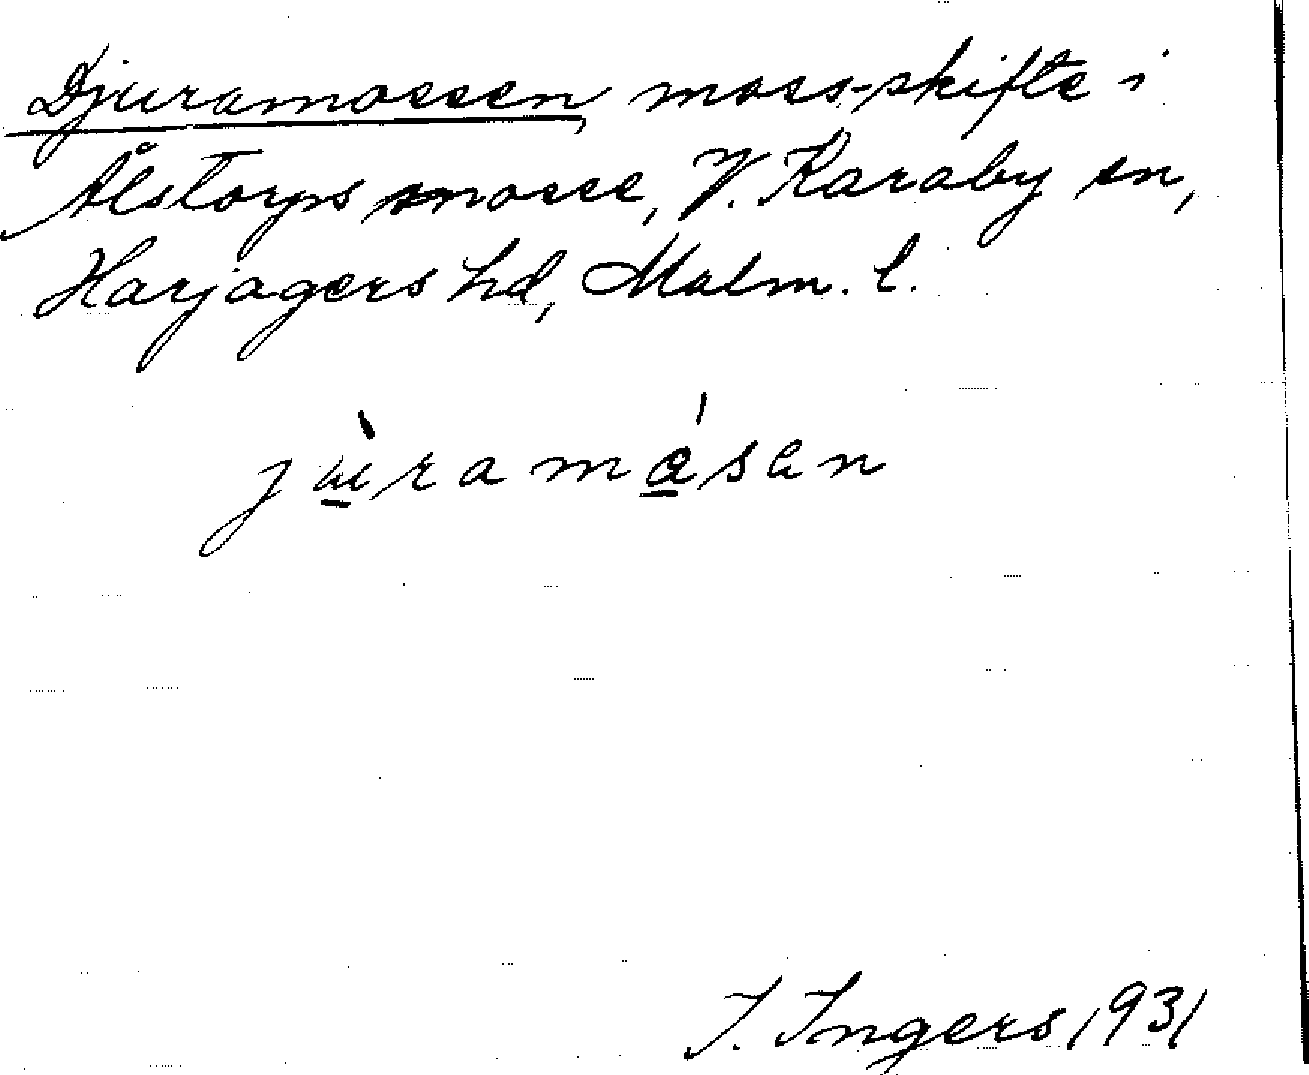 Djuramossen, moss-skifte i
Ålstorps mosse, V. Karaby sn,
Harjagers hd, Malm. l.
jùramåsen
I. Ingers 1931